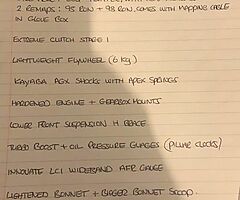 2 REMAPS: 95 RON + 98 RON. COMES WITH MAPPING CABLE
IN GLOVE BOX
EXTREME CLUTCH STAGE 1
LIGHTWEIGHT FLYWHEEL (6 kg)
KAYABA AGX SHOCKS WITH APEX SPRINGS
HARDENED ENGINE + GEARBOX MOUNTS
LOWER FRONT SUSPENSION H BRACE
TURBO BOOST + OIL PRESSURE GUAGES (PILLAR CLOCKS)
INNOVATE LC1 WIDEBAND AFR GAUGE
LIGHTENED BONNET + BIGGER BONNET SCOOP.